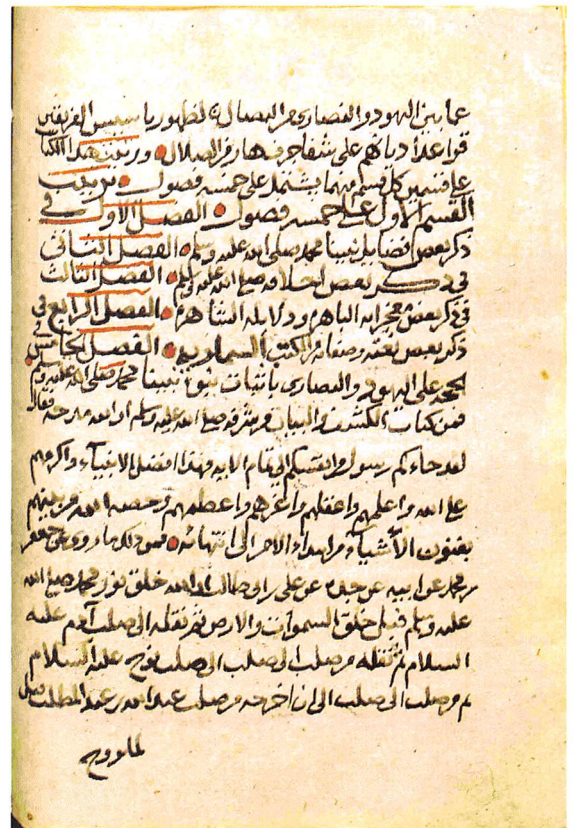 عما بين اليهود والنصارى من النصال لظهور تاسيس الفريقين
قواعد اديانهم على شفا جرف هار من الضلال ورتبت هذا الكتاب
على قسمين كل قسم منهما يشتمل على خمسه فصول ترتيب
القسم الاول على خمسه فصول الفصل الاول في
ذكر بعض فضايل نبينا محمد صلى الله عليه وسلم الفصل الثانى
فى ذكر بعض اخلاقه صلى الله عليه وسلم الفصل الثالث
فى ذكر بعض معجزاته الباهره ودلايله الظاهره الفصل الرابع فى
ذكر بعض نعته وصفاته من الكتب السماويه الفصل الخامس فى
الحجه على اليهود والنصارى باثبات نبوة نبينا محمد صلى الله عليه وسلم
فمن كتاب الكشف والبيان وشرفه صلى الله عليه وسلم ان الله مدحه فقال
لقد جاءكم رسول من انفسكم الى تمام الايه فهذا افضل الانبياء واكرمهم
على الله واعلمهم واعقلهم واعزهم واعظمهم وخصه الله من بينهم
بفنون الأشياء من ابتداء الامر الى انتهائه فمن ذلك ما روى عن جعفر
بن محمد عن ابيه عن جده عن على بن ابى طالب ان الله خلق نور محمد صلى الله
عليه وسلم قبل خلق السموات والارض ثم نقله الى صلب آدم عليه
السلام ثم نقله من صلب الى صلب الى صلب نوح عليه السلام
ثم من صلب الى صلب الى ان اخرجه من صلب عبد الله بن عبد المطلب